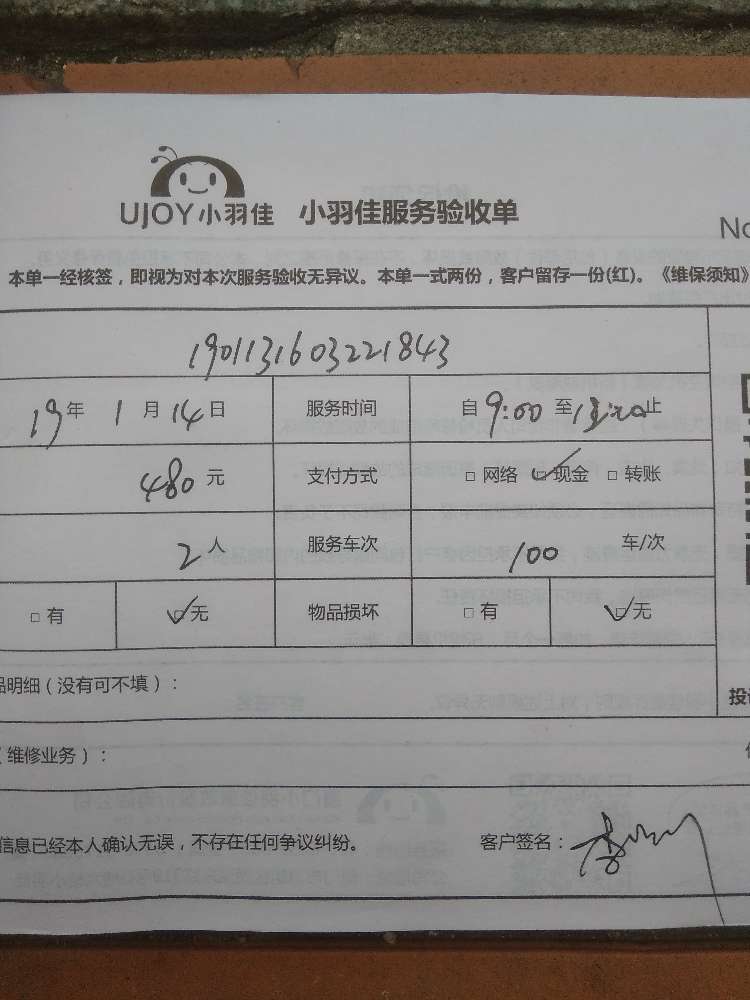 UJOY小羽佳 小羽佳服务验收单
No
本单一经核签，即视为对本次服务验收无异议。本单一式两份，客户留存一份(红)。《维保须知》
1901131603221843
19年 1月 14日 服务时间 自9:00至 止
480元 支付方式 □网络 ☑现金 □转账
2人 服务车次 100 车/次
□有 ☑无 物品损坏 □有 ☑无
品明细（没有可不填）： 投
（维修业务）：
信息已经本人确认无误，不存在任何争议纠纷。 客户签名：